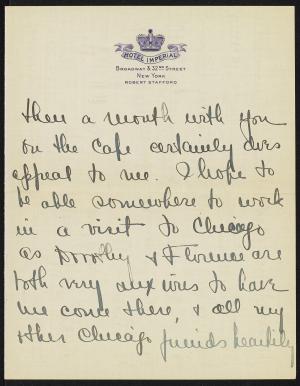 HOTEL IMPERIAL
BROADWAY & 32ND STREET
NEW YORK
ROBERT STAFFORD
then a month with you
on the Cape certainly does
appeal to me. I hope to
be able somewhere to work
in a visit to Chicago
as Dorothy & Florence are
both very anxious to have
me come there, & all my
other Chicago friends heartily